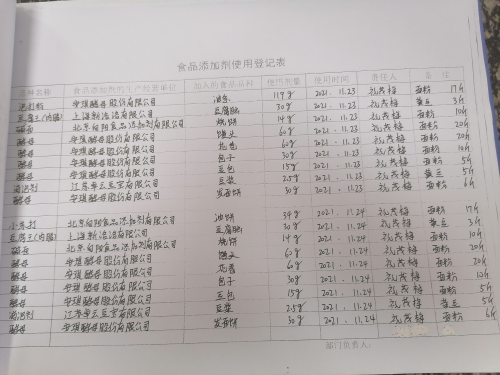 食品添加剂使用登记表
品种名称 食品添加剂的生产经营单位 加入的食品品种 使用剂量 使用时间 责任人 备注
泡打粉 安琪酵母股份有限公司 油条 119g 2021.11.23 面粉 17斤
豆腐王(内脂) 上海 有限公司 豆腐脑 30g 2021.11.23 黄豆 3斤
碱面 北京 食品添加剂有限公司 烧饼 14g 2021.11.23 面粉 10斤
酵母 安琪酵母股份有限公司 馒头 60g 2021.11.23 面粉 20斤
酵母 安琪酵母股份有限公司 60g 2021.11.23 面粉 20斤
酵母 安琪酵母股份有限公司 包子 30g 2021.11.23 面粉 10斤
酵母 安琪酵母股份有限公司 豆包 15g 2021.11.23 面粉 5斤
消泡剂 江苏 有限公司 豆浆 25g 2021.11.23 黄豆 5斤
酵母 安琪酵母股份有限公司 发面饼 30g 2021.11.23 面粉 6斤
小苏打 北京 食品添加剂有限公司 油饼 34g 2021.11.24 面粉 17斤
豆腐王(内脂) 上海 有限公司 豆腐脑 30g 2021.11.24 黄豆 3斤
碱面 北京 食品添加剂有限公司 烧饼 14g 2021.11.24 面粉 10斤
酵母 安琪酵母股份有限公司 馒头 60g 2021.11.24 面粉 20斤
酵母 安琪酵母股份有限公司 60g 2021.11.24 面粉 20斤
酵母 安琪酵母股份有限公司 包子 30g 2021.11.24 面粉 10斤
酵母 安琪酵母股份有限公司 豆包 15g 2021.11.24 面粉 5斤
消泡剂 江苏 有限公司 豆浆 25g 2021.11.24 黄豆 5斤
酵母 安琪酵母股份有限公司 发面饼 30g 2021.11.24 面粉 6斤
部门负责人: